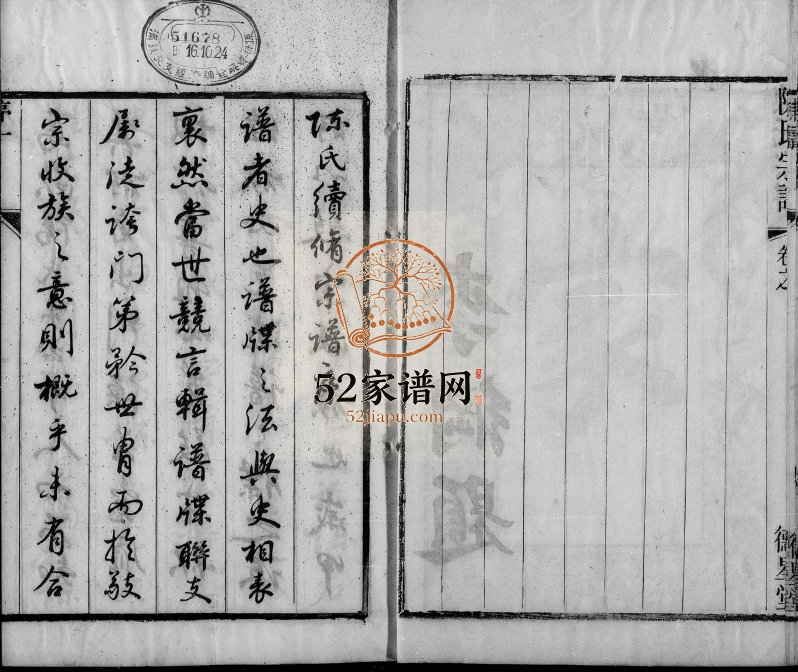 陳氏宗譜
卷之
陈氏續脩宗谱
谱者史也谱牒之法與史相表
裏然當世競言輯谱牒聯支
屬徒誇门第矜世胄而於敬
宗收族之意則概乎未有合
序一
51678
16.10.24
52家谱网
52jiapu.com